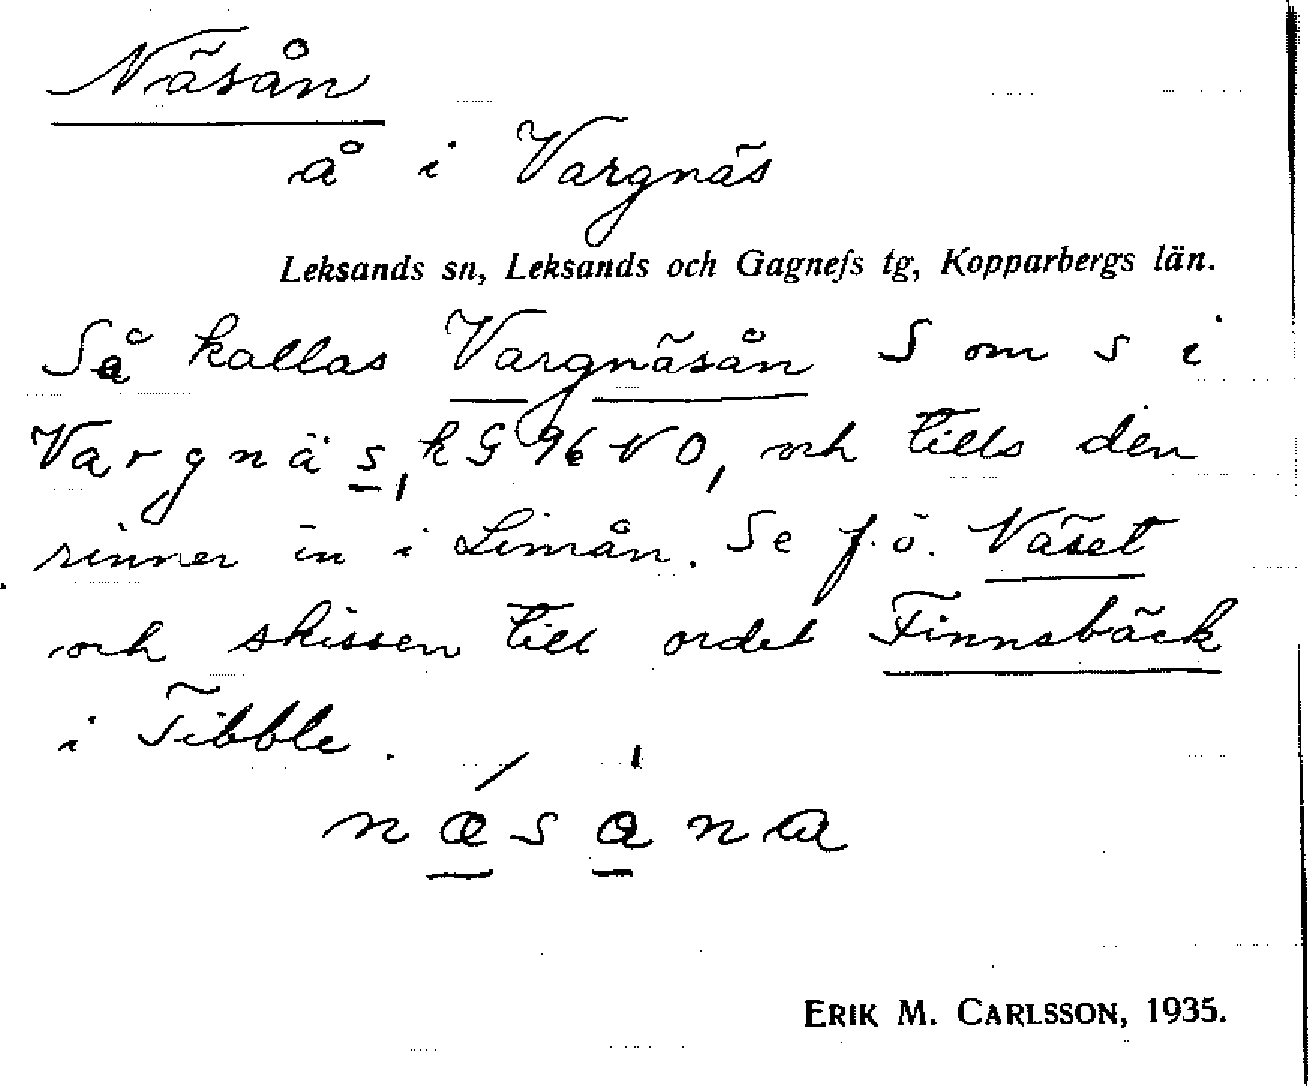 Näsån
å i Vargnäs
Leksands sn, Leksands och Gagnefs tg, Kopparbergs län.
Så kallas Vargnäsån S om s i
Vargnäs, kG 96 NO, och tills den
rinner in i Limån. Se f.ö. Näset
och skissen till ordet Finnsbäck
i Tibble.
ERIK M. CARLSSON, 1935.